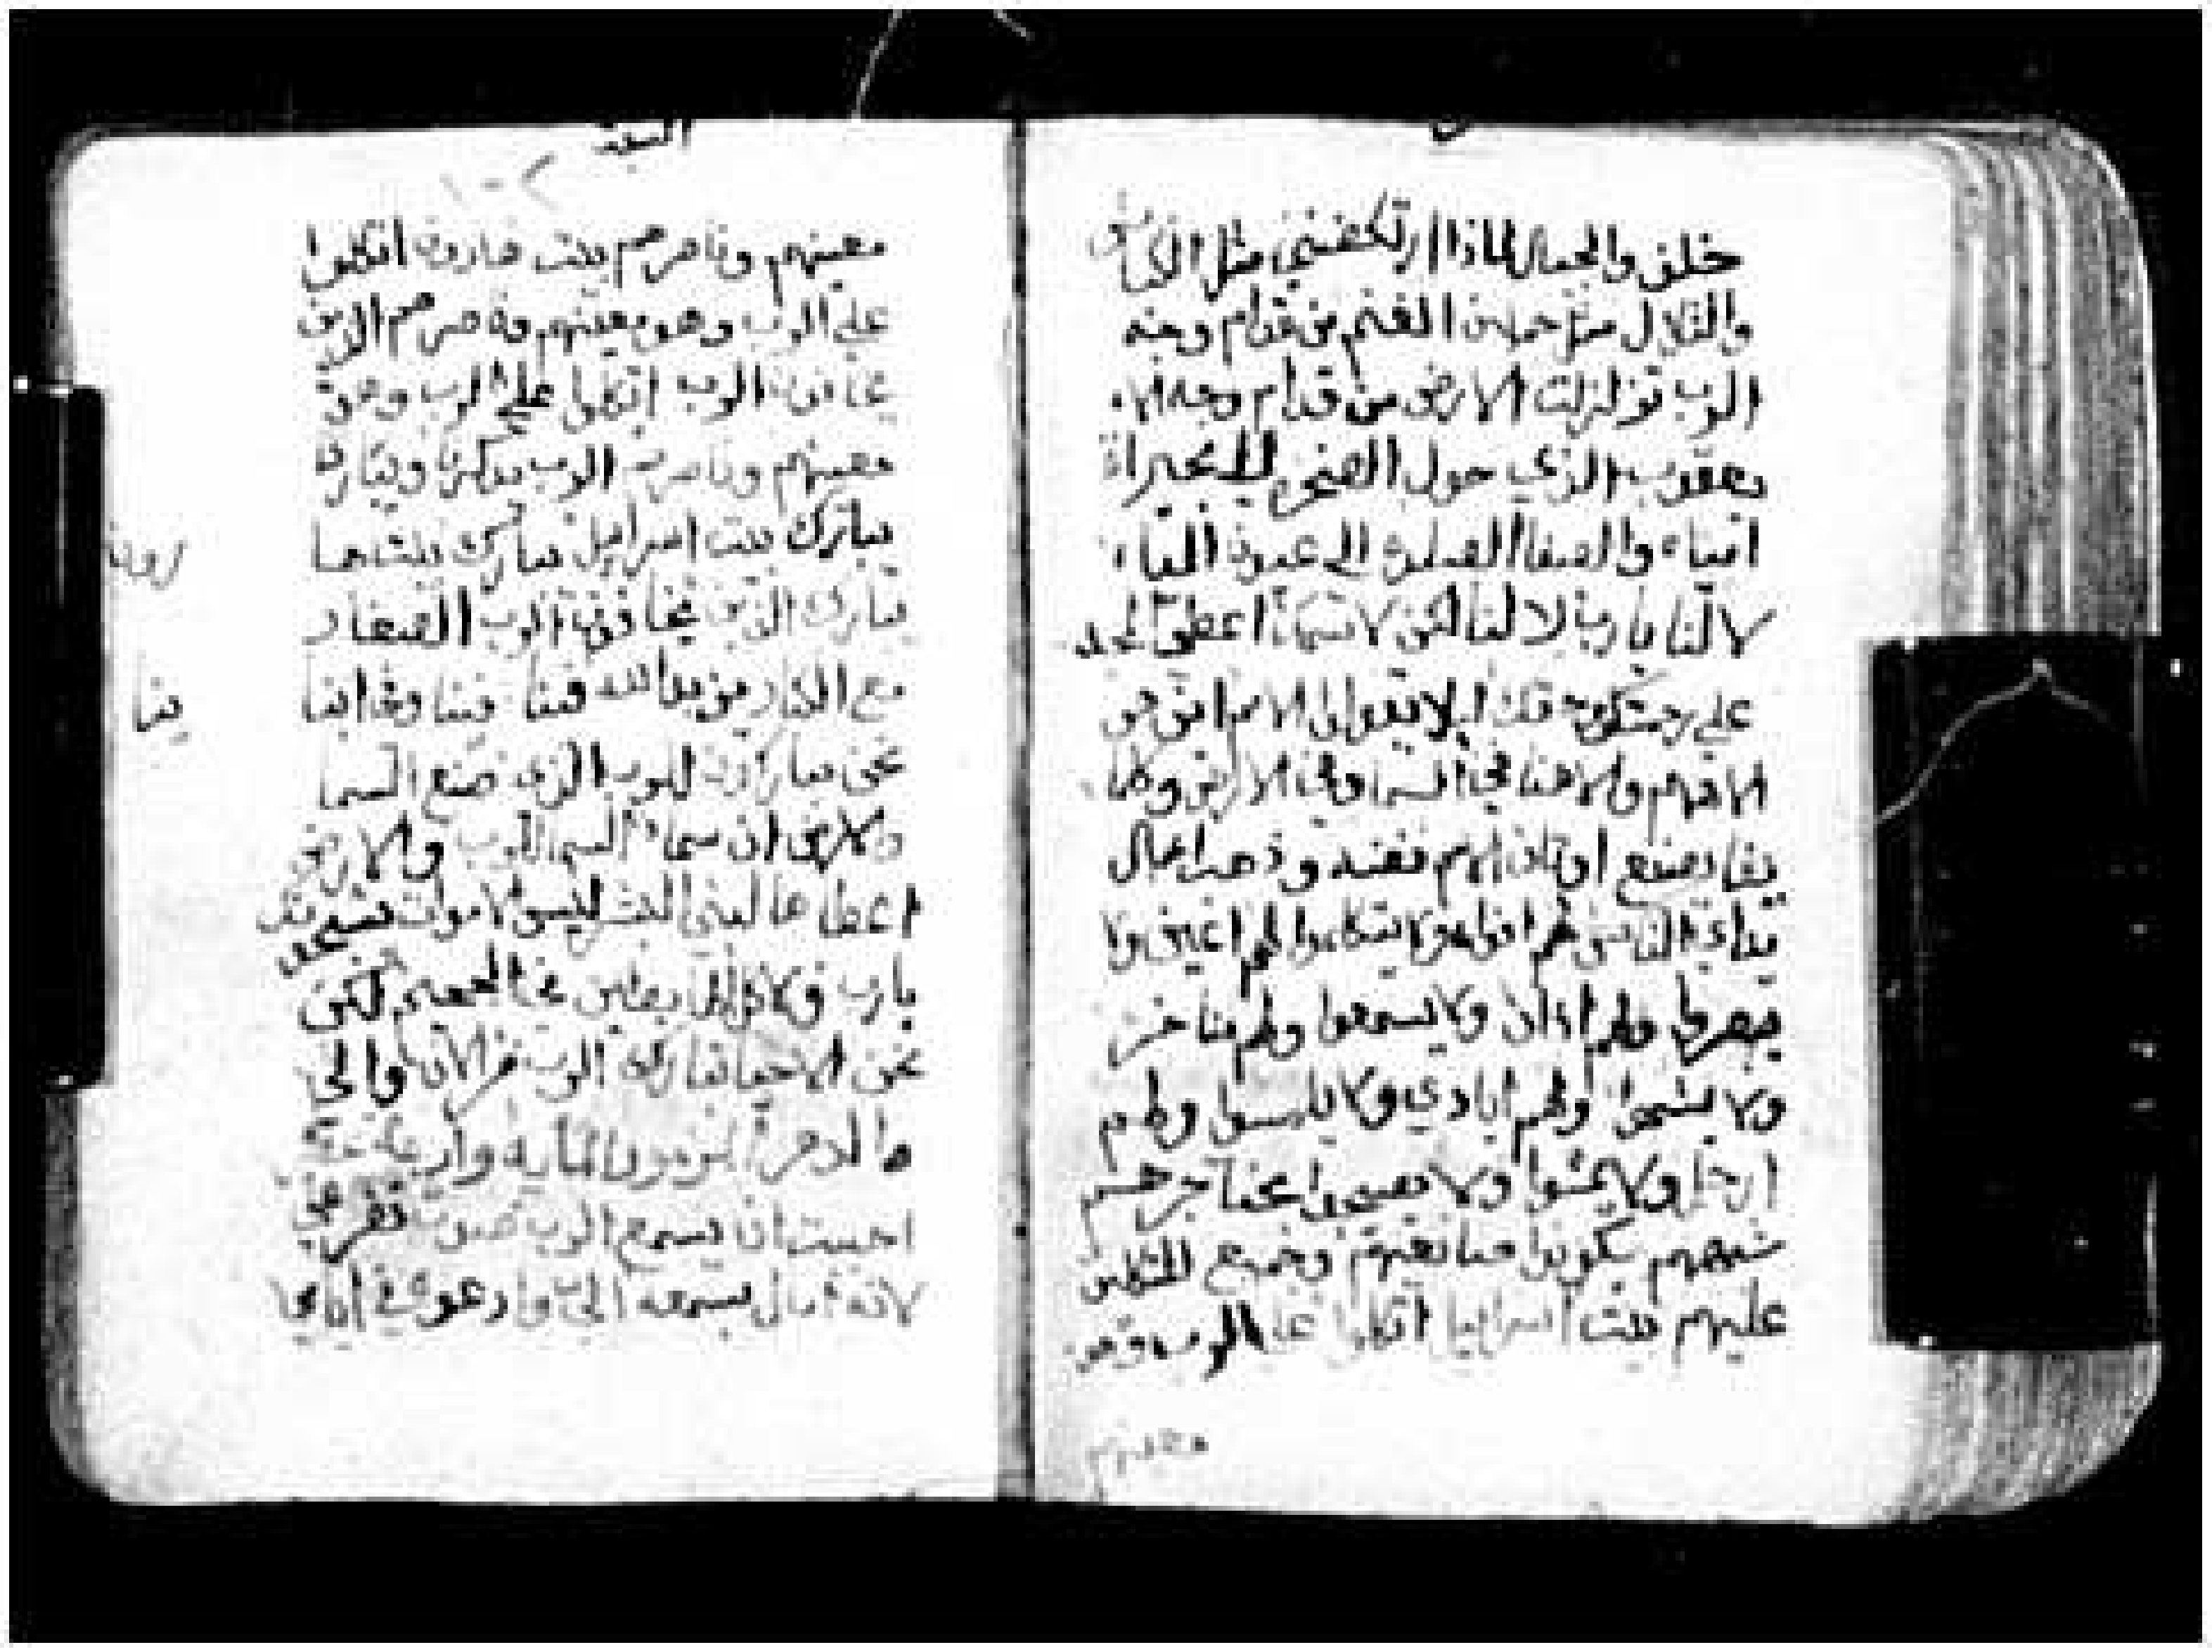 خلف والجبال لماذا ارتكضتي مثل الكباش
والتلال مثل حملان الغنم من قدام وجه
الرب تزلزلت الارض من قدام وجه الاه
يعقوب الذي حول الصخور الى بحيراة
امياه والصفا الى عيون المياه
لا لنا يا رب لا لنا لكن لاسمك اعطي المجد
على رحمتك وحقك ليلا تقول الامم اين هو
الاههم والاهنا في السما وفي الارض وكلما
يشا يصنع اوثان الامم فضه وذهب اعمال
يداي الناس لهم افواه ولا يتكلموا لهم اعين ولا
يبصروا ولهم اذان ولا يسمعوا ولهم مناخر
ولا يشموا ولهم ايادي ولا يلمسوا ولهم
ارجل ولا يمشوا ولا يصيحوا بحناجرهم
شبههم يكونوا صانعيهم وجميع المتكلين
عليهم بيت اسراييل اتكلوا على الرب وهو
معينهم
معينهم وناصرهم بيت هارون اتكلوا
على الرب وهو معينهم وناصرهم الذين
يخافون الرب اتكلوا على الرب وهو
معينهم وناصرهم الرب ذكرنا وباركنا
يبارك بيت اسراييل يبارك بيت هارون
يبارك الذين يخافون الرب الصغار
مع الكبار يزيد الله فينا فينا وفي ابنا
ينا
نحن مباركون للرب الذي صنع السما
والارض ان سماء السما للرب والارض
اعطاها لبني البشر ليس الاموات يسبحونك
يا رب ولا كل الهابطين الى الجحيم لكن
نحن الاحيا نبارك الرب من الان والى
والدهر المزمور المايه واربعة عشر
احببت ان يسمع الرب صوت تضرعي
لانه امال بسمعه الي وادعوه في ايامي